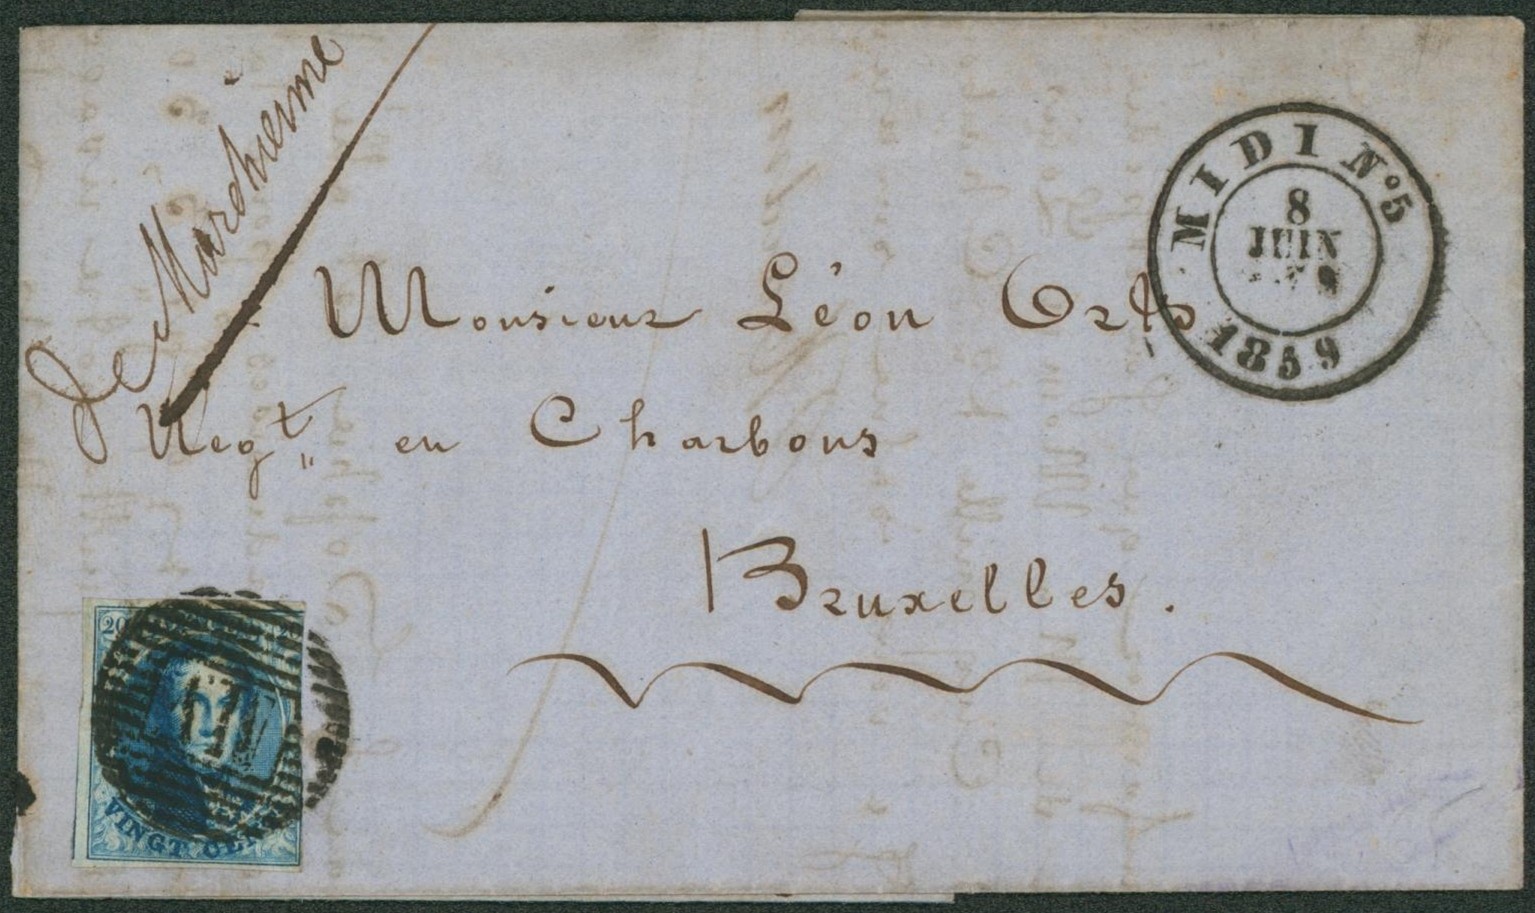 de Marchienne
MIDI N° 5
8
JUIN
1859
Monsieur Léon Orts
Negt en Charbons
Bruxelles.
20
VINGT CENT